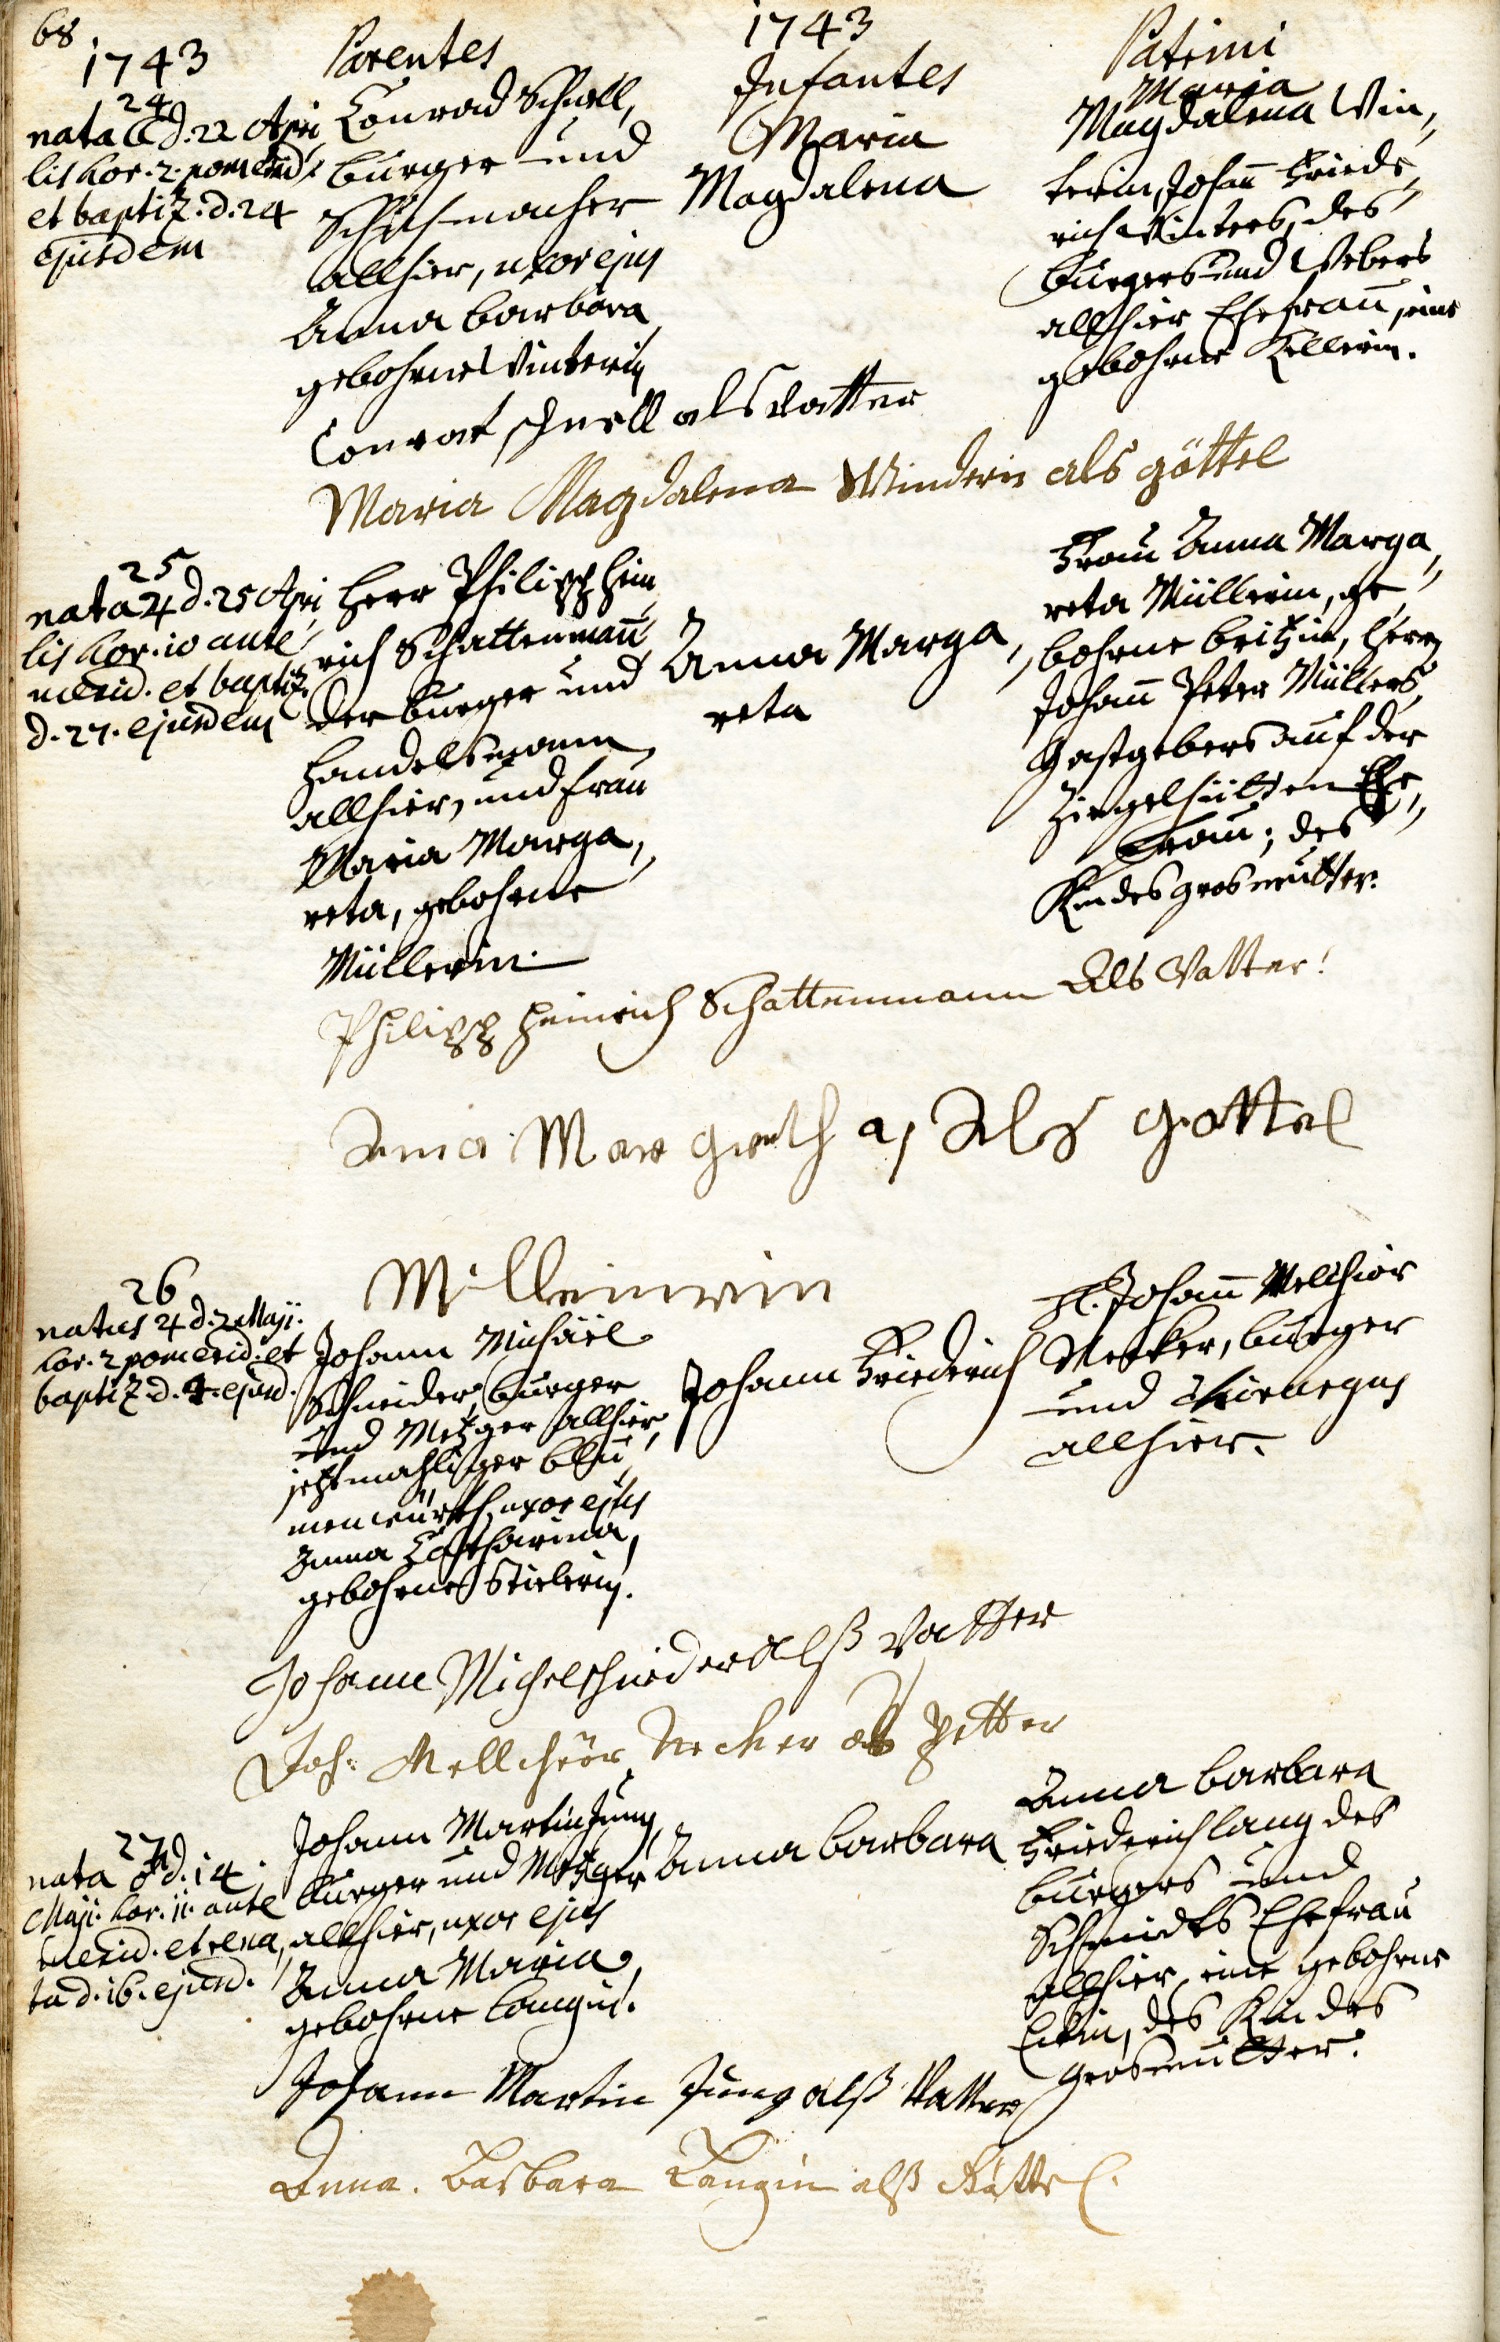 68
1743
Parentes
1743
Infantes
Patrini
24
nata ☾ d. 22 Apri,
lis hor. 2. pomerid.
et baptiz. d. 24
ejusdem
Conrad Schnell,
burger und
Schuhmacher
allhier, uxor ejus
Anna Barbara
gebohrne Winterin
Maria
Magdalena
Maria
Magdalena Win,,
terin, Johann Friede,,
rich Winters, des
burgers und Webers
allhier Ehefrau, eine
gebohrne Kellerin.
Conrat schnell als vatter
Maria Magdalena Winderin als göttel
25
nata ♃ d. 25 Apri,
lis hor. 10 ante
merid. et baptiz.
d. 27. ejusdem
Herr Philipp Hein,
rich Schattenmann
der burger und
Handelsmann
allhier, und Frau
Maria Marga,,
reta, gebohrne
Müllerin.
Anna Marga,,
reta
Frau Anna Marga,,
reta Müllerin, ge,,
bohrne Britzin, Herrn
Johann Peter Müllers,
Gastgebers auf der
Ziegelhütten Ehe,,
Frau; des
Kindes Grosmutter.
Philipp Heinrich Schattenmann Als Vatter!
Anna Mar greth a, Als gottel
Millerin
26
natus ♃ d. 2 Maji.
hor. 2 pomerid. et
baptiz. d. 4. ejusd.
Johann Michäel
Schneider, burger
und Metzger allhier,
jetzmahliger Blu,,
menwürth, uxor ejus
Anna Catharina,
gebohrne Stielerin.
Johann Friederich
H. Johann Melchior
Necker, burger
und Chirurgus
allhier.
Johanne Michel schnieder alß vatter
Joh: Mellchior Necker als Petter
27
nata ♂ d. 14
Maji. hor. 11. ante
merid. et rena,,
ta d. 16. ejusd.
Johann Martin Jung,
burger und Metzger
allhier, uxor ejus
Anna Maria,
gebohrne Langin.
Anna Barbara
Anna Barbara
Friederich Lang des
burgers und
Schmidts Ehefrau
allhier, eine gebohrne
des Kindes
Grosmutter.
Johann Martin Jung alß Vatter
Anna. Barbara Langin alß Göttel.